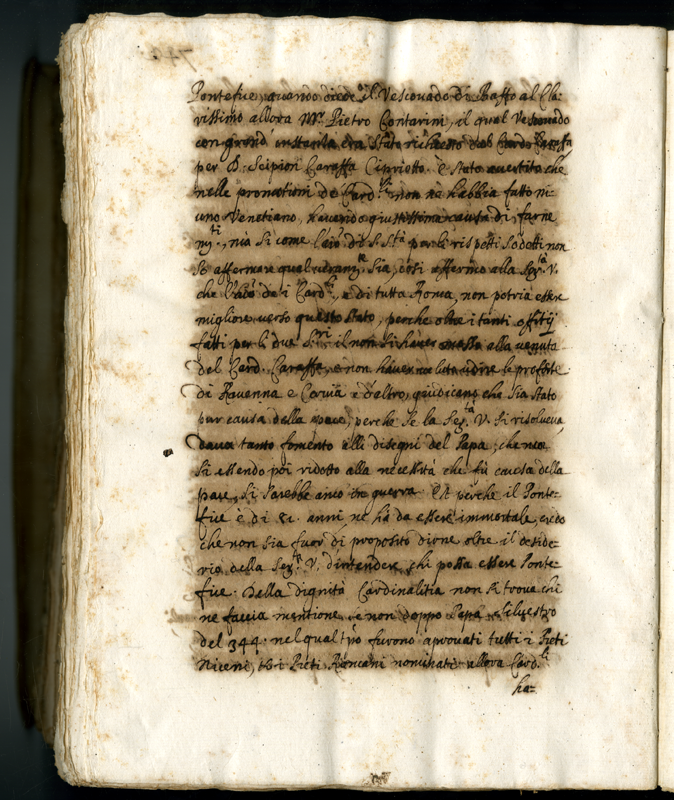 Pontefice, quando diede il Vescovado di Baffo al Cla-
rissimo allora Mr. Pietro Contarini, il qual Vescovado
con grand' instantia era stato richiesto dal Card. Caraffa
per D. Scipion Caraffa Cipriotto. è stato avertito che
nelle promotioni de Card.li non nè habbia fatto ni-
uno Venetiano, havendo giustissima causa di farne
mti., mà si come l'aio di S. Stà per li rispetti sodetti non
so affermare qual veramte. sia, così affermo alla Ser.tà V.
che l'aio de i Card.li, e di tutta Roma, non potria essere
migliore verso questo stato, perche oltre i tanti offitij
fatti per li due S.ri il non si haver mossa alla venuta
del Card. Caraffa, e non haver voluto udire le proposte
di Ravenna e Cervia e d'altro, giudicano che sia stato
pur causa della pace, perche se la Ser.tà V. si risolveva
dava tanto fomento alli disegni del Papa, che non
si essendo poi ridotto alla necessità che fù causa della
pace, si sarebbe anco in guerra. Et perche il Ponte-
fice è di 81. anni, ne hà da essere immortale, credo
che non sia fuor di proposito dirne oltre il deside-
rio della Ser.tà V. d'intendere chi possa essere Ponte-
fice. Della dignità Cardinalitia non si trova chi
ne faccia mentione, se non doppo Papa Silvestro
del 344. nel qual tpo furono aprovati tutti i Preti
Niceni, et i Preti Romani nominati allora Card.li
ha-